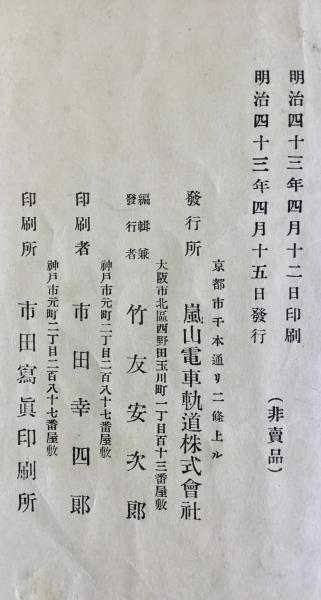 明治四十三年四月十二日印刷
明治四十三年四月十五日發行
(非賣品)
京都市千本通リ二條上ル
發行所 嵐山電車軌道株式會社
大阪市北區西野田玉川町一丁目百十三番屋敷
編輯兼發行者 竹友安次郎
神戸市元町二丁目二百八十七番屋敷
印刷者 市田幸四郎
神戸市元町二丁目二百八十七番屋敷
印刷所 市田寫眞印刷所